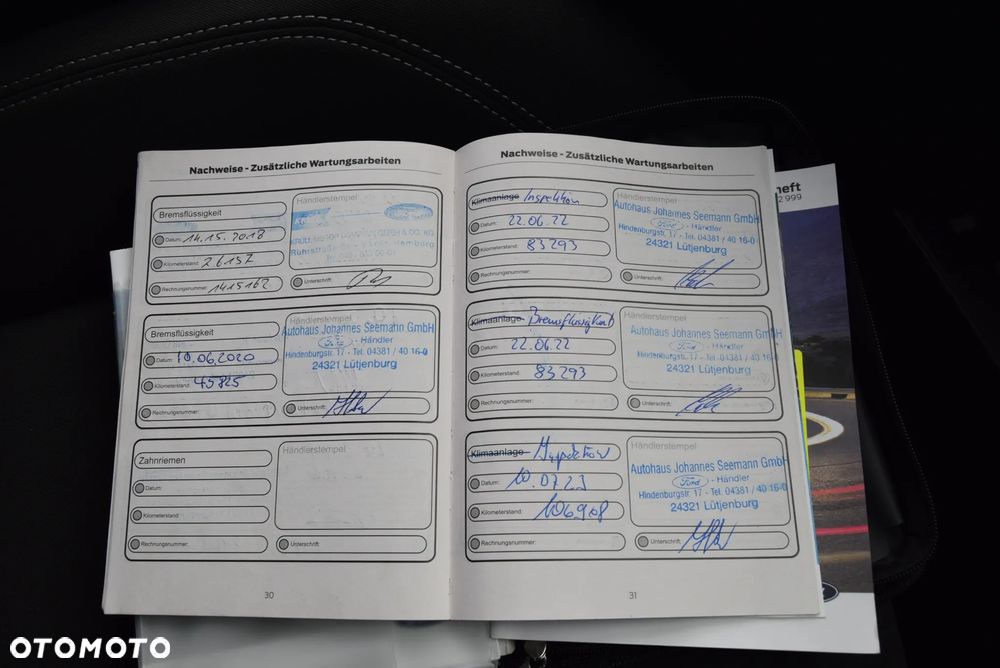 Nachweise - Zusätzliche Wartungsarbeiten
Bremsflüssigkeit
Händlerstempel
Datum: 14.15.2018
Kilometerstand: 26157
Ruhrstraße Hamburg
Rechnungsnummer: 1415162
Unterschrift:
Bremsflüssigkeit
Händlerstempel
Autohaus Johannes Seemann GmbH
Ford - Händler
Hindenburgstr. 17 - Tel. 04381 / 40 16-0
24321 Lütjenburg
Datum: 10.06.2020
Kilometerstand: 45825
Rechnungsnummer:
Unterschrift:
Zahnriemen
Händlerstempel
Datum:
Kilometerstand:
Rechnungsnummer:
Unterschrift:
30
Nachweise - Zusätzliche Wartungsarbeiten
Klimaanlage Inspektion
Händlerstempel
Autohaus Johannes Seemann GmbH
Ford - Händler
Hindenburgstr. 17 - Tel. 04381 / 40 16-0
24321 Lütjenburg
Datum: 22.06.22
Kilometerstand: 83293
Rechnungsnummer:
Unterschrift:
Klimaanlage Bremsflüssigkeit
Händlerstempel
Autohaus Johannes Seemann GmbH
Ford - Händler
Hindenburgstr. 17 - Tel. 04381 / 40 16-0
24321 Lütjenburg
Datum: 22.06.22
Kilometerstand: 83293
Rechnungsnummer:
Unterschrift:
Klimaanlage Inspektion
Händlerstempel
Autohaus Johannes Seemann GmbH
Ford - Händler
Hindenburgstr. 17 - Tel. 04381 / 40 16-0
24321 Lütjenburg
Datum: 10.07.23
Kilometerstand: 106908
Rechnungsnummer:
Unterschrift:
31
heft
2 999
OTOMOTO